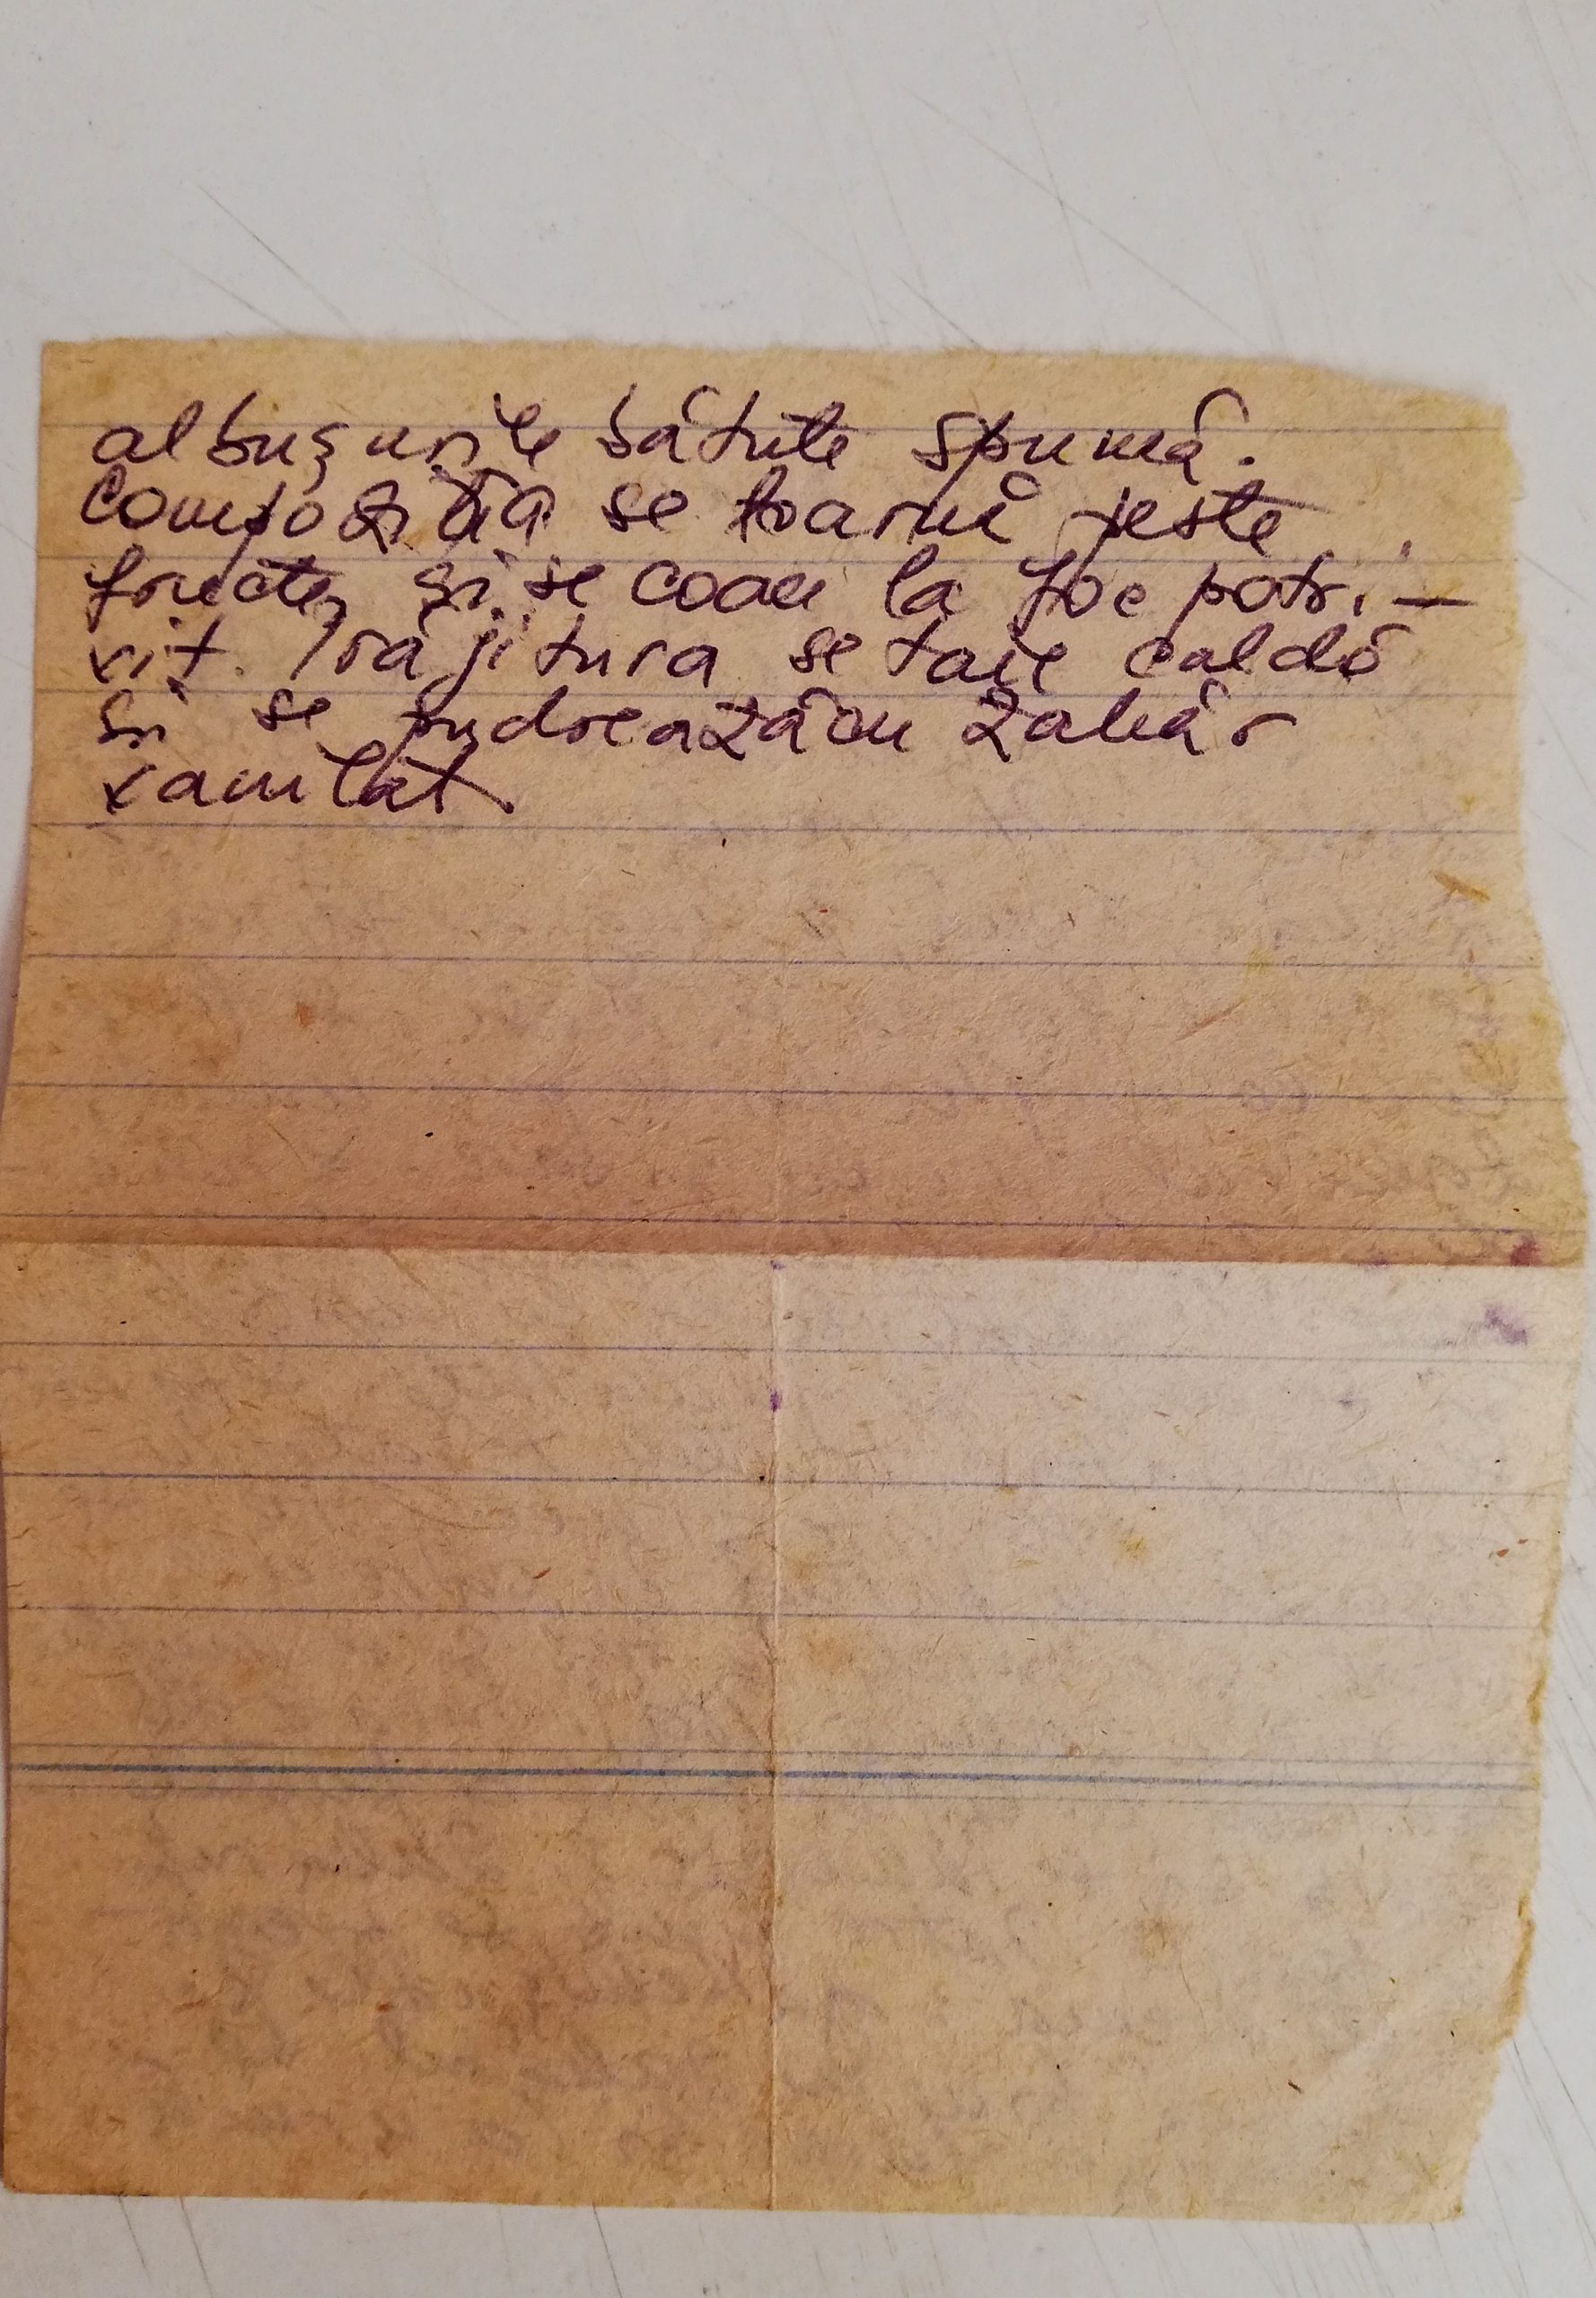 albușurile bătute spumă.
Compoziția se toarnă peste
fructe, și se coace la foc potri-
vit. Prăjitura se taie caldă
și se pudrează cu zahăr
vanilat.